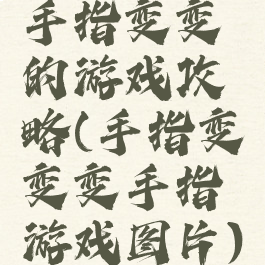 手指变变
的游戏攻
略(手指变
变变手指
游戏图片)